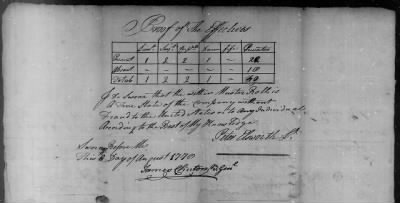 Proof of the Effectives
Lieut Serjt Corpls Drum fife Privates
Present 1 2 2 1 — 28
Absent — — — — — 12
Total 1 2 2 1 — 40
I Do Swear that the within Muster Roll is
A True State of the Company without
Fraud to the United States or to Any Individual
According to the Best of My Knowledge
Peter Elsworth
Sworn Before Me
This Day of August 1778
James Clinton B Genl